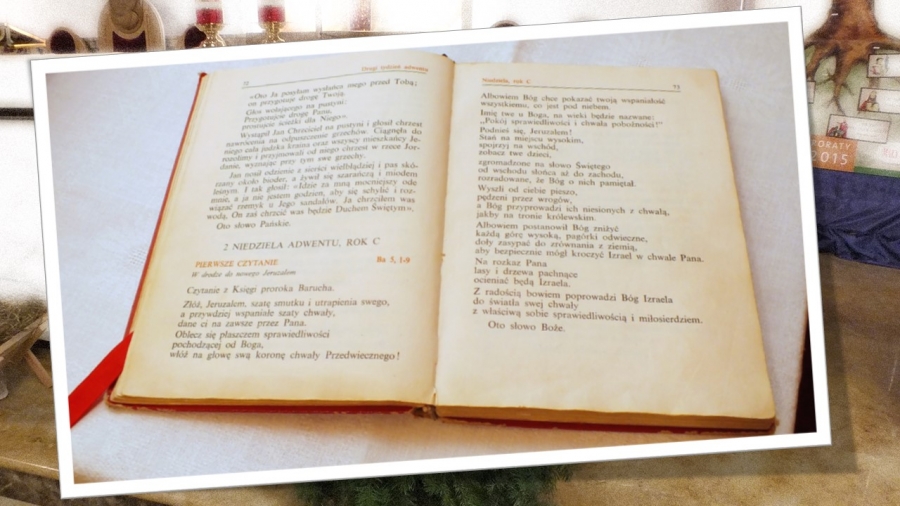 72
Drugi tydzień adwentu
«Oto Ja posyłam wysłańca mego przed Tobą;
on przygotuje drogę Twoją.
Głos wołającego na pustyni:
Przygotujcie drogę Panu,
prostujcie ścieżki dla Niego»
Wystąpił Jan Chrzciciel na pustyni i głosił chrzest
nawrócenia na odpuszczenie grzechów. Ciągnęła do
niego cała judzka kraina oraz wszyscy mieszkańcy Je-
rozolimy i przyjmowali od niego chrzest w rzece Jor-
danie, wyznając przy tym swe grzechy.
Jan nosił odzienie z sierści wielbłądziej i pas skó-
rzany około bioder, a żywił się szarańczą i miodem
leśnym. I tak głosił: «Idzie za mną mocniejszy ode
mnie, a ja nie jestem godzien, aby się schylić i roz-
wiązać rzemyk u Jego sandałów. Ja chrzciłem was
wodą, On zaś chrzcić was będzie Duchem Świętym»,
Oto słowo Pańskie.
2 NIEDZIELA ADWENTU, ROK C
PIERWSZE CZYTANIE
Ba 5, 1-9
W drodze do nowego Jeruzalem
Czytanie z Księgi proroka Barucha.
Złóż, Jeruzalem, szatę smutku i utrapienia swego,
a przywdziej wspaniałe szaty chwały,
dane ci na zawsze przez Pana.
Oblecz się płaszczem sprawiedliwości
pochodzącej od Boga,
włóż na głowę swą koronę chwały Przedwiecznego!
Niedziela, rok C
73
Albowiem Bóg chce pokazać twoją wspaniałość
wszystkiemu, co jest pod niebem.
Imię twe u Boga, na wieki będzie nazwane:
„Pokój sprawiedliwości i chwała pobożności!"
Podnieś się, Jeruzalem!
Stań na miejscu wysokim,
spojrzyj na wschód,
zobacz twe dzieci,
zgromadzone na słowo Świętego
od wschodu słońca aż do zachodu,
rozradowane, że Bóg o nich pamiętał.
Wyszli od ciebie pieszo,
pędzeni przez wrogów,
a Bóg przyprowadzi ich niesionych z chwałą,
jakby na tronie królewskim.
Albowiem postanowił Bóg zniżyć
każdą górę wysoką, pagórki odwieczne,
doły zasypać do zrównania z ziemią,
aby bezpiecznie mógł kroczyć Izrael w chwale Pana.
Na rozkaz Pana
lasy i drzewa pachnące
ocieniać będą Izraela.
Z radością bowiem poprowadzi Bóg Izraela
do światła swej chwały
z właściwą sobie sprawiedliwością i miłosierdziem.
Oto słowo Boże.
RORATY
2015